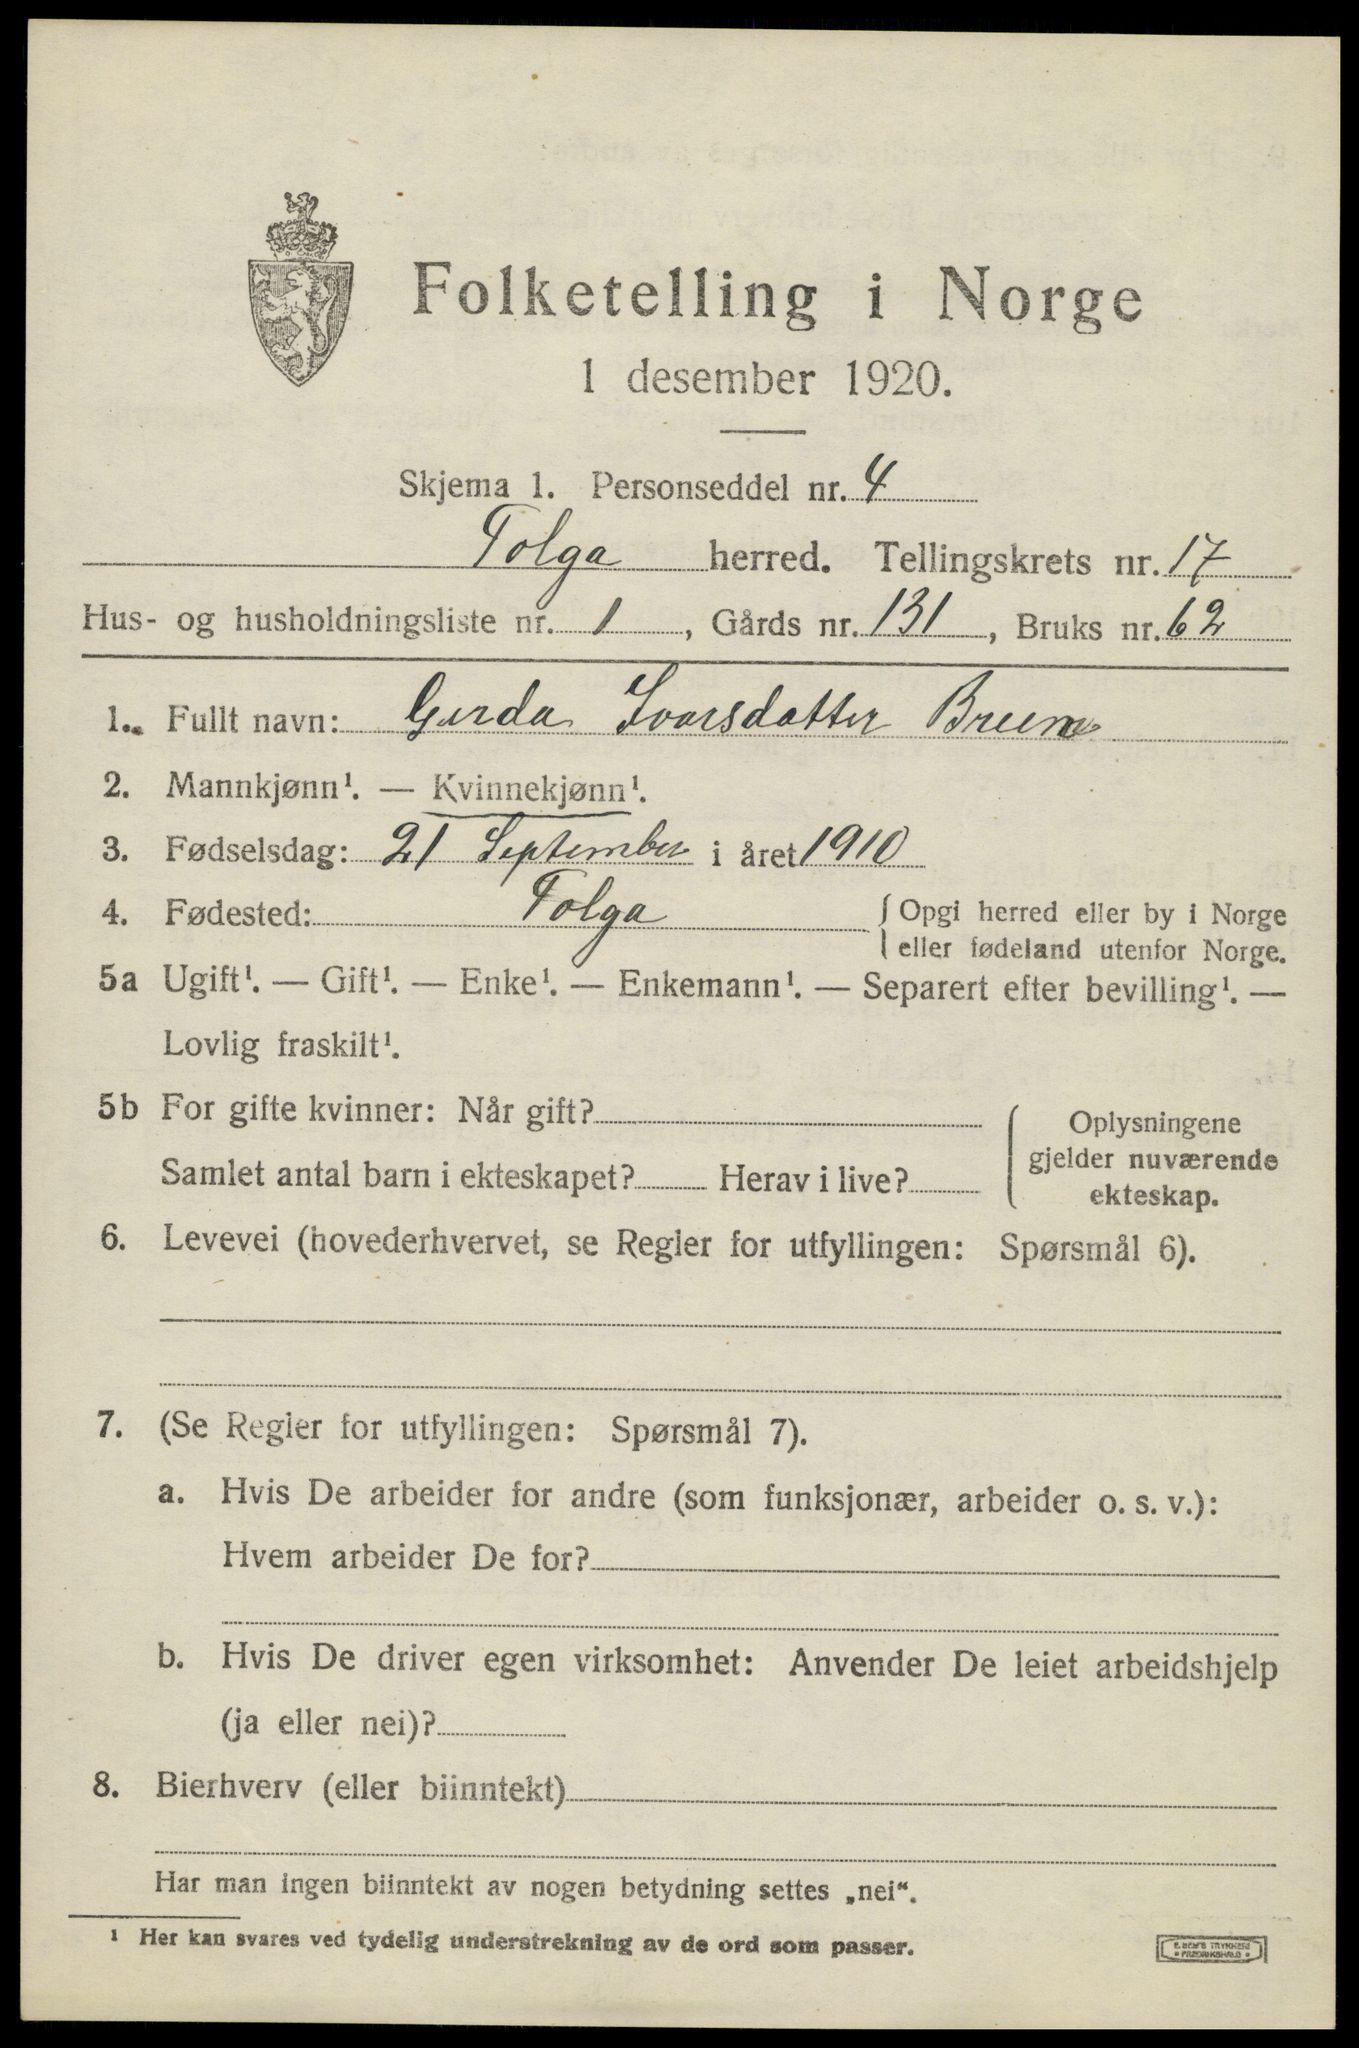 Folketelling i Norge
1 desember 1920.
Skjema 1. Personseddel nr. 4
Tolga herred. Tellingskrets nr. 17
Hus- og husholdningsliste nr. 1, Gårds nr. 131, Bruks nr. 62
1. Fullt navn: Gerda Ivarsdatter
2. Mannkjønn¹. — Kvinnekjønn¹.
3. Fødselsdag: 21 September i året 1910
4. Fødested: Tolga { Opgi herred eller by i Norge
eller fødeland utenfor Norge.
5a Ugift¹. — Gift¹. — Enke¹. — Enkemann¹. — Separert efter bevilling¹. —
Lovlig fraskilt¹.
5b For gifte kvinner: Når gift?
Samlet antal barn i ekteskapet? Herav i live?
Oplysningene
gjelder nuværende
ekteskap.
6. Levevei (hovederhvervet, se Regler for utfyllingen: Spørsmål 6).
7. (Se Regler for utfyllingen: Spørsmål 7).
a. Hvis De arbeider for andre (som funksjonær, arbeider o. s. v.):
Hvem arbeider De for?
b. Hvis De driver egen virksomhet: Anvender De leiet arbeidshjelp
(ja eller nei)?
8. Bierhverv (eller biinntekt)
Har man ingen biinntekt av nogen betydning settes „nei“.
¹ Her kan svares ved tydelig understrekning av de ord som passer.